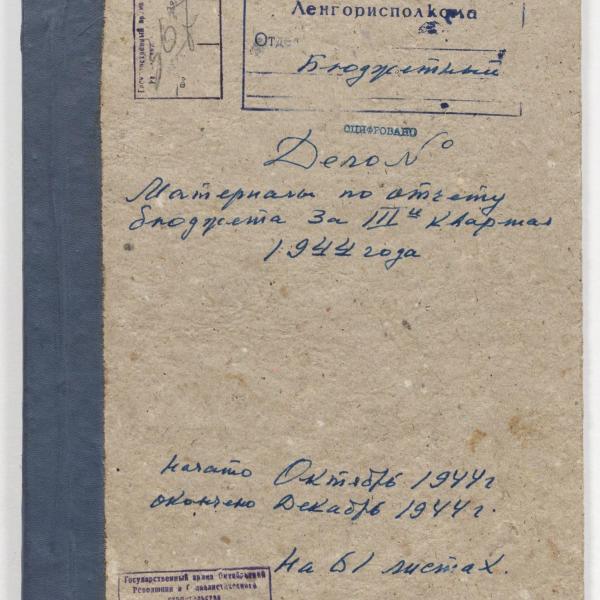 Ленгорисполкома
Отдел
Бюджетный
ОЦИФРОВАНО
Дело №
Материалы по отчету
бюджета за III й квартал
1944 года
начато Октябрь 1944 г
окончено Декабрь 1944 г.
на 61 листах.
Государственный архив Октябрьской
Революции и Социалистического
строительства